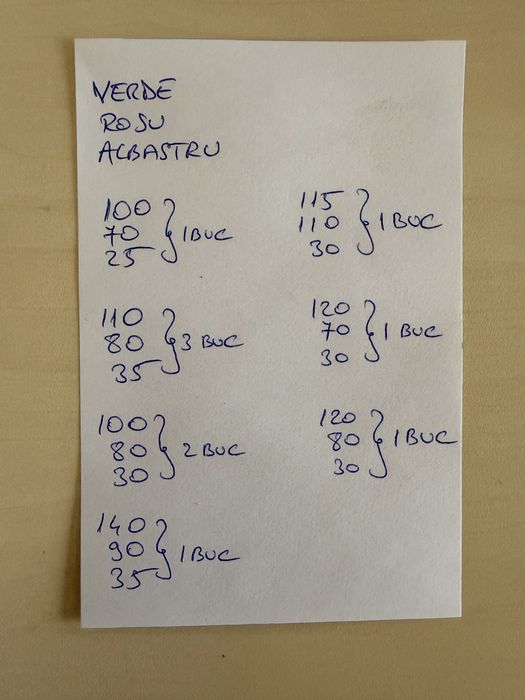 VERDE
ROSU
ALBASTRU
100
70 } 1 BUC
25
110
80 } 3 BUC
35
100
80 } 2 BUC
30
140
90 } 1 BUC
35
115
110 } 1 BUC
30
120
70 } 1 BUC
30
120
80 } 1 BUC
30